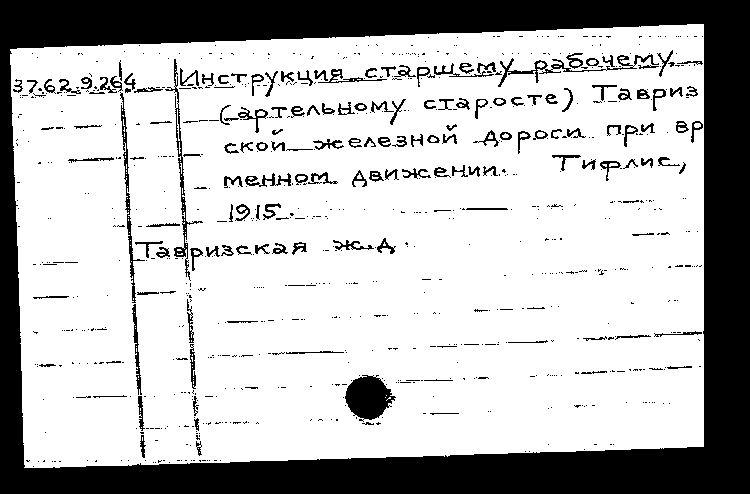 37.62.9.264 Инструкция старшему рабочему
(артельному старосте) Тавриз
ской железной дороги при вр
менном движении. Тифлис,
1915.
Тавризская ж.д.